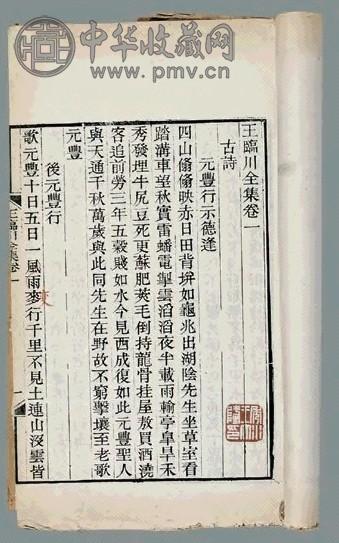 中华收藏网
www.pmv.cn
王臨川全集卷一
古詩
元豐行示德逢
四山翛翛映赤日田背坼如龜兆出湖陰先生坐草室看
踏溝車望秋實雷蟠電掣雲滔滔夜半載雨輸亭臯旱禾
秀發埋牛尻豆死更蘇肥莢毛倒持龍骨挂屋敖買酒澆
客追前勞三年五穀賤如水今見西成復如此元豐聖人
與天通千秋萬歲與此同先生在野故不窮擊壤至老歌
元豐
後元豐行
歌元豐十日五日一風雨麥行千里不見土連山沒雲皆
王臨川全集卷一
一